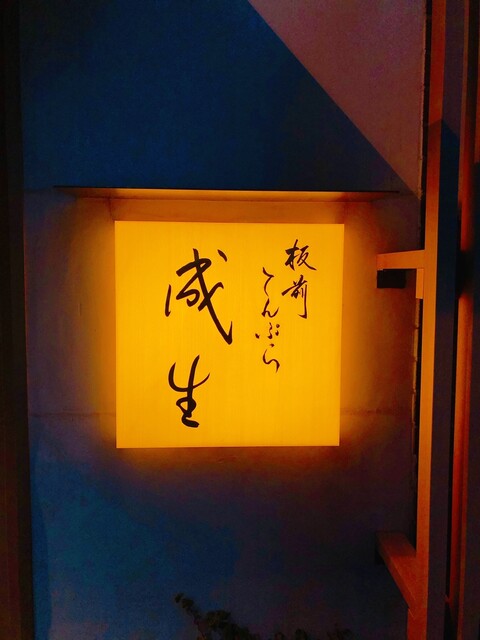 板前てんぷら
成生